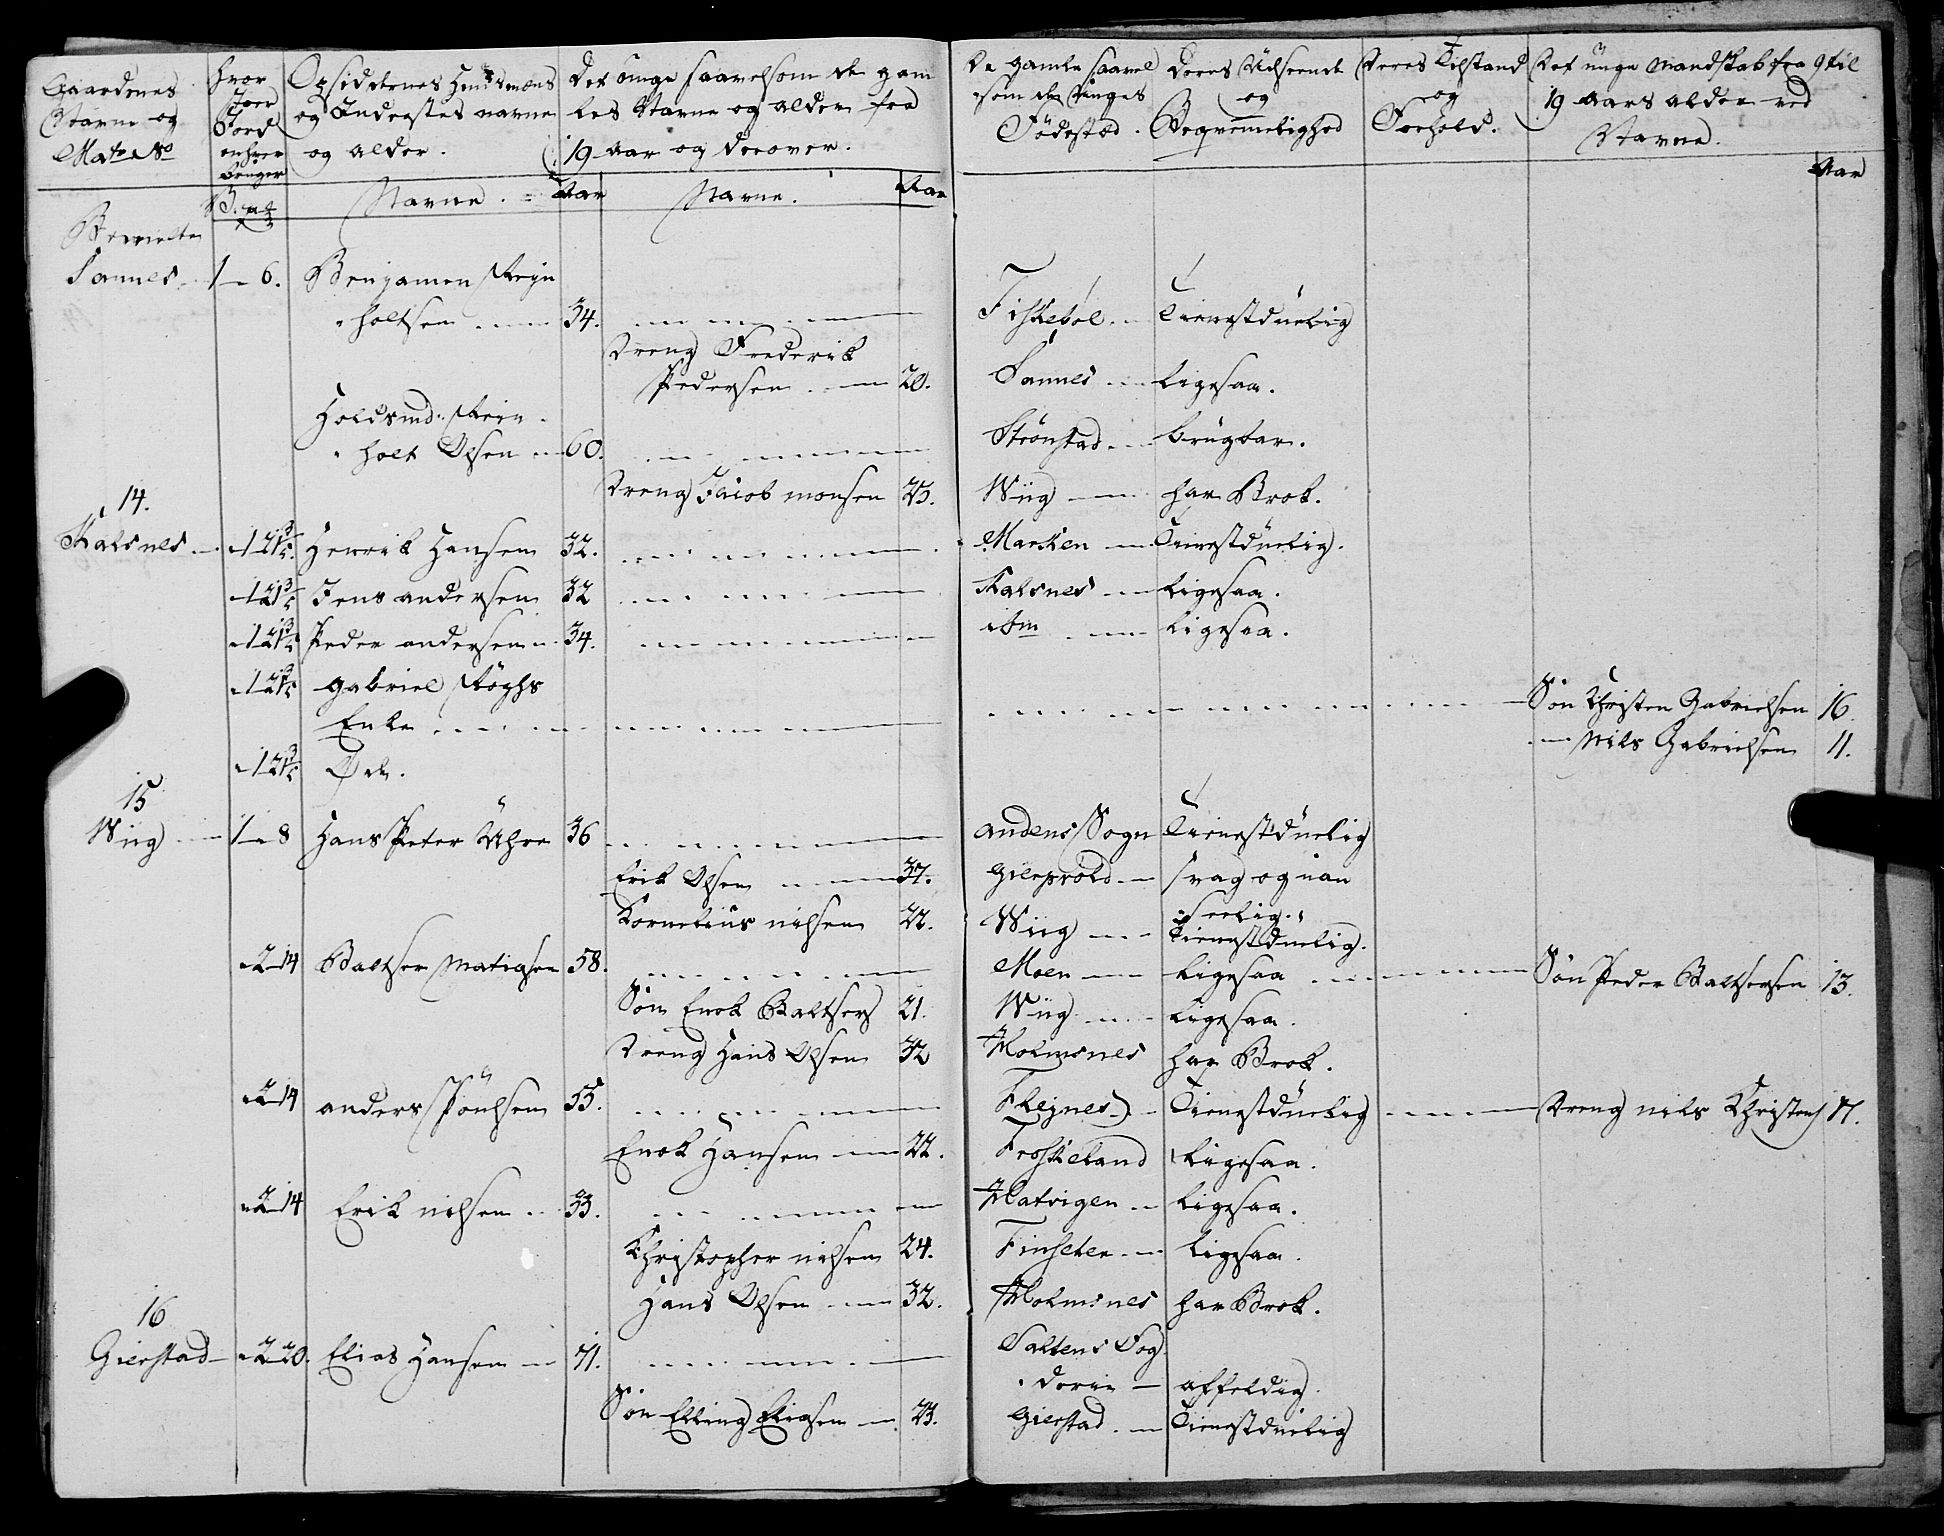 Gaardenes
Navne og
Mat. No
hvor
stoer
Jord
enhver
bruger
B. m&
Opsiddernes Huusmæns
og Inderstes navne
og alder.
Navne. Aar
Det unge saavelsom de gam
les Navne og alder fra
19 aar og derover.
Navne. Aar
De gamle saavel
som de Unges
Fødested.
Deres Udseende
og
Beqvemmelighed
Deres Tilstand
og
Forhold.
Det unge Mandskab fra 9 til
19 Aars alder ved
Navne.
Aar
Sannes 1 - 6. Benjamen Rejn
holtsen 34. Fiskebøl Tienestduelig
Dreng Frederik
Pedersen 20. Sannes ligesaa.
Holdsmd: Rein
holt Olsen 60. Strønstad brugbar.
Dreng Jacob monsen 25. Wiig har Brok.
14.
Kalsnes - 1 21 3/5. Henrik Hansen 32. Marken Tienestduelig.
- 1 21 3/5 Jens andersen 32 Kalsnes ligesaa.
- 1 21 3/5 Peder andersen 34. ibm ligesaa.
- 1 21 3/5 Gabriel Røghs
Enke Søn Christen Gabrielsen 16.
- Nils Gabrielsen 11.
- 1 21 3/5 Øde.
15
Wiig 1 - 8 Hans Peter Uhre 36 andenes Sogn Tienestduelig
Erik Olsen 37. svag og uan
seelig.
Kornelius nilsen 22. Wiig Tienestduelig.
- 2 14 Baltser Matiasen 58. Moen ligesaa Søn Peder Baltsersen 13.
Søn Enok Baltsers 21. Wiig ligesaa.
Dreng Hans Olsen 32 Holmsnes har Brok.
- 2 14 anders Poulsen 55. Flejnes Tienestduelig Dreng nils Christens 17.
Enok Hansen 22. Froskeland ligesaa.
- 2 14 Erik nilsen 33. Hatvigen ligesaa.
Christopher nilsen 24. Finseter ligesaa.
Hans Olsen 32. Holmsnes har Brok.
16
Gierstad - 2 20. Elias Hansen 71. Saltens Fog
derie affeldig.
Søn Elling Eliasen 23. Gierstad Tienestduelig